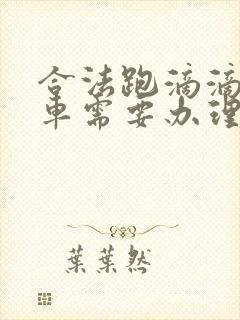 合法跑滴滴
车需要办理
葉葉然